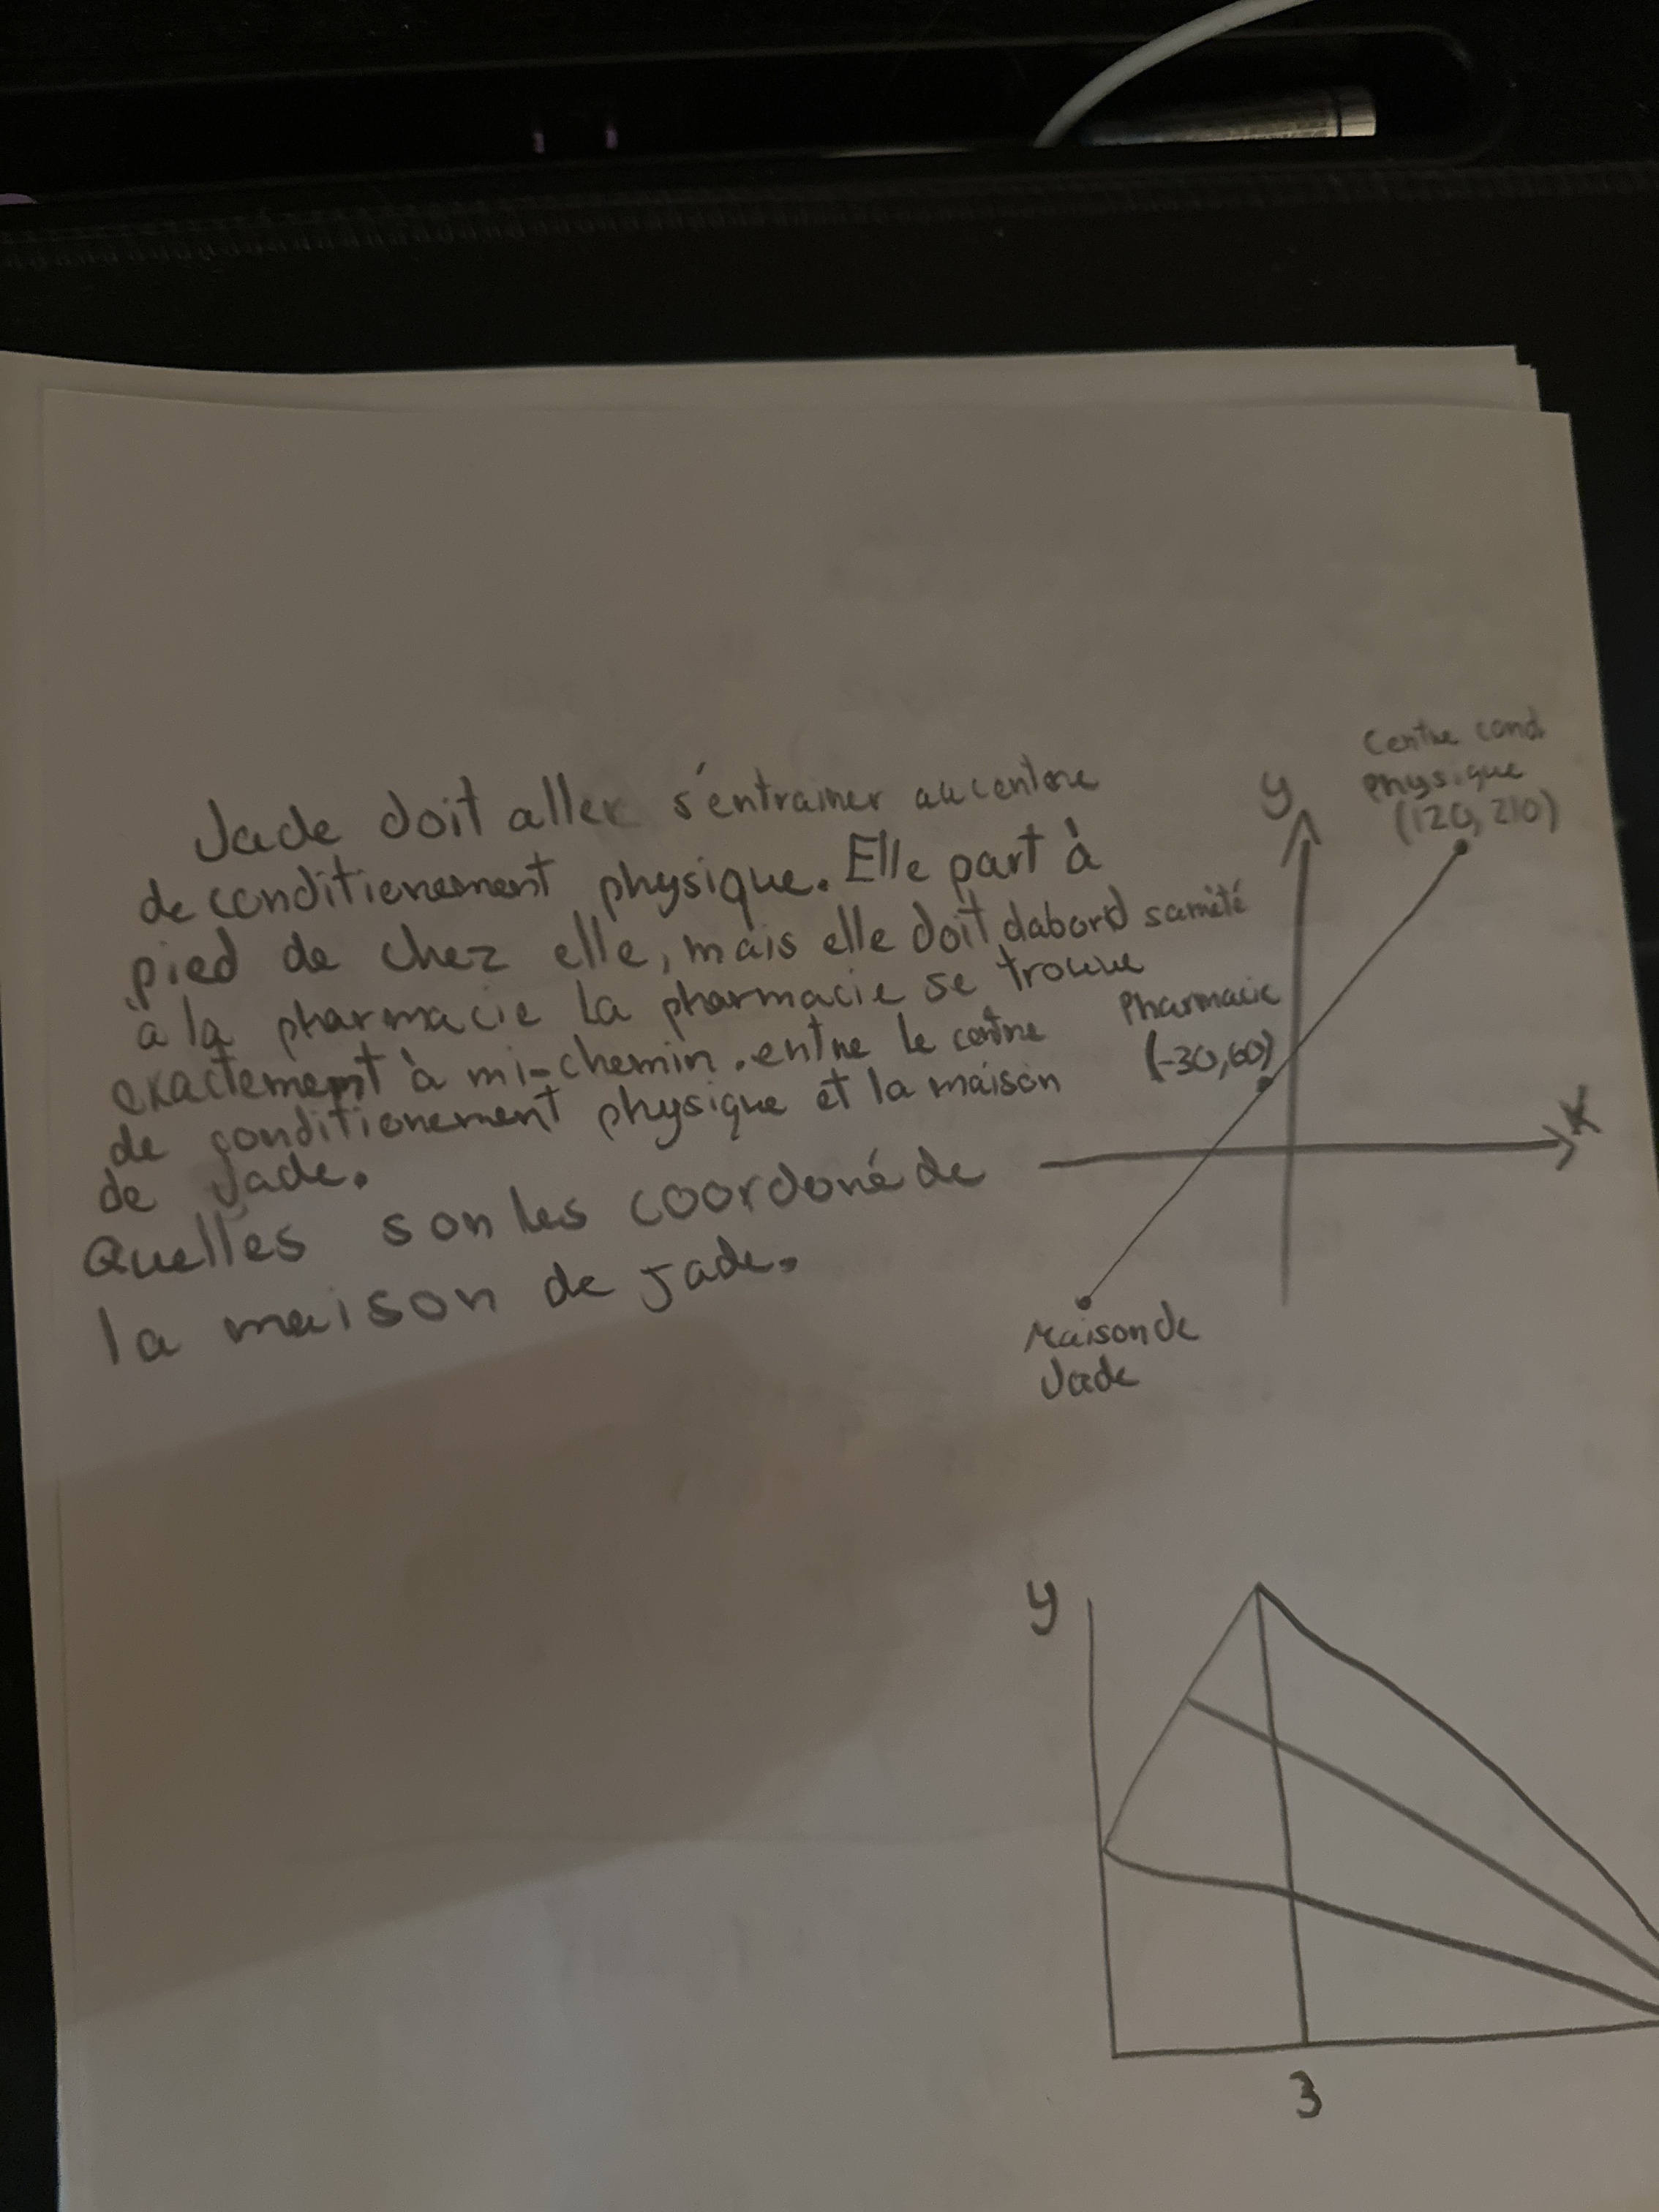 Jade doit aller s'entrainer au centre
de conditienement physique. Elle part à
pied de chez elle, mais elle doit dabord
à la pharmacie La pharmacie se trouve
exactement à mi-chemin. entre le centre
de conditionement physique et la maison
de Jade.
Quelles son les coordoné de
la maison de Jade.
Centre cond
physique
(120, 210)
y
Pharmacie
(-30,60)
x
Maison de
Jade
y
3